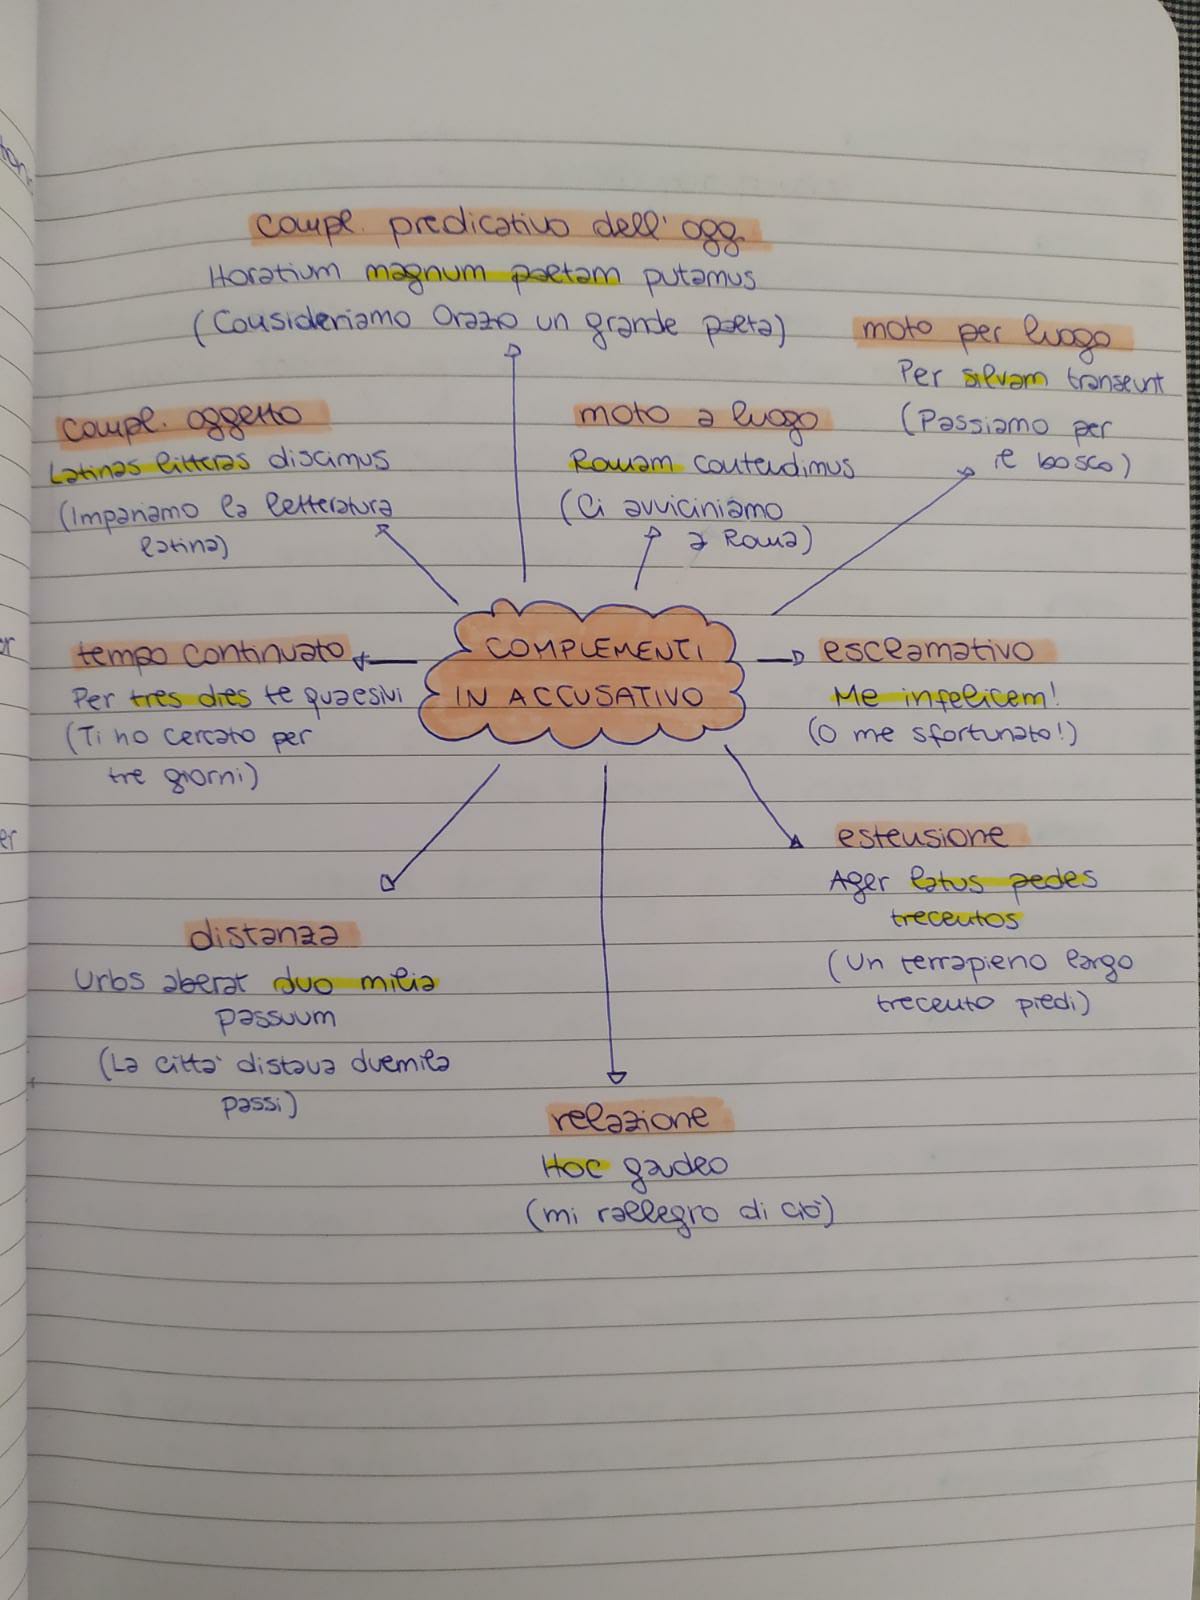 compl. predicativo dell'ogg.
Horatium magnum poetam putamus
(Consideriamo Orazio un grande poeta)
moto per luogo
Per silvam transeunt
(Passiamo per
il bosco)
compl. oggetto
Latinas litteras discimus
(Impariamo la letteratura
latina)
moto a luogo
Romam contendimus
(Ci avviciniamo
a Roma)
tempo continuato
Per tres dies te quaesivi
(Ti ho cercato per
tre giorni)
COMPLEMENTI
IN ACCUSATIVO
esclamativo
Me infelicem!
(O me sfortunato!)
estensione
Ager latus pedes
trecentos
(Un terrapieno largo
trecento piedi)
distanza
Urbs aberat duo milia
passuum
(La città distava duemila
passi)
relazione
Hoc gaudeo
(mi rallegro di ciò)
er